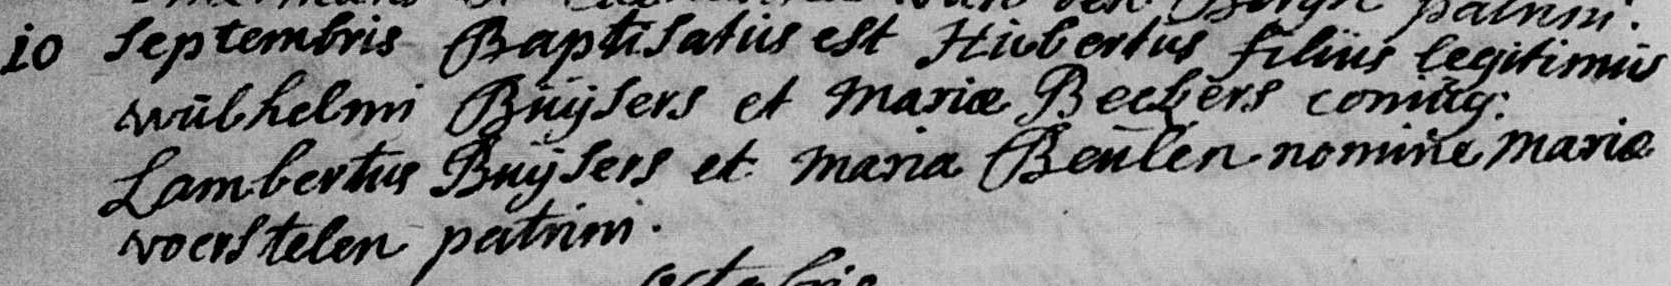 patrini.
10 Septembris Baptisatus est Hubertus filius legitimus
wilhelmi Buÿsers et Mariæ Beckers coniug:
Lambertus Buÿsers et Maria Beulen nomine Mariæ
voerstelen patrini.
octobris